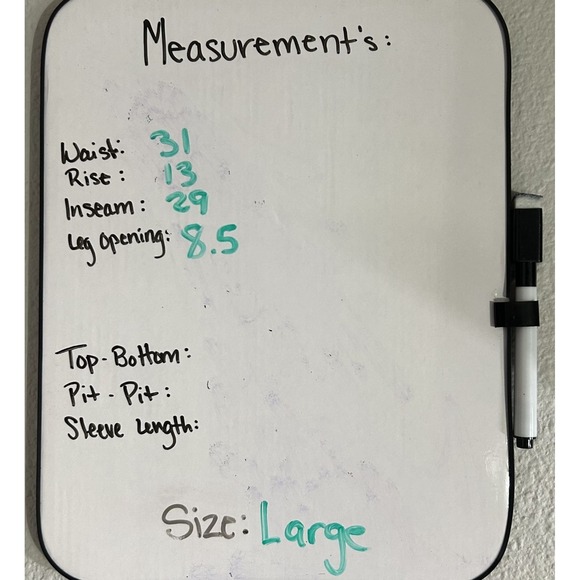 Measurement's:
Waist: 31
Rise: 13
Inseam: 29
Leg opening: 8.5
Top-Bottom:
Pit-Pit:
Sleeve Length:
Size: Large